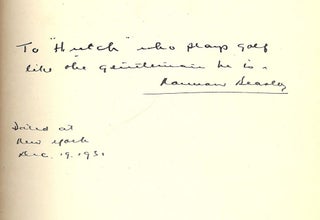 To "Hutch" who plays golf
like the gentleman he is -
Norman Beasley
Dated at
New York
Dec. 19. 1931